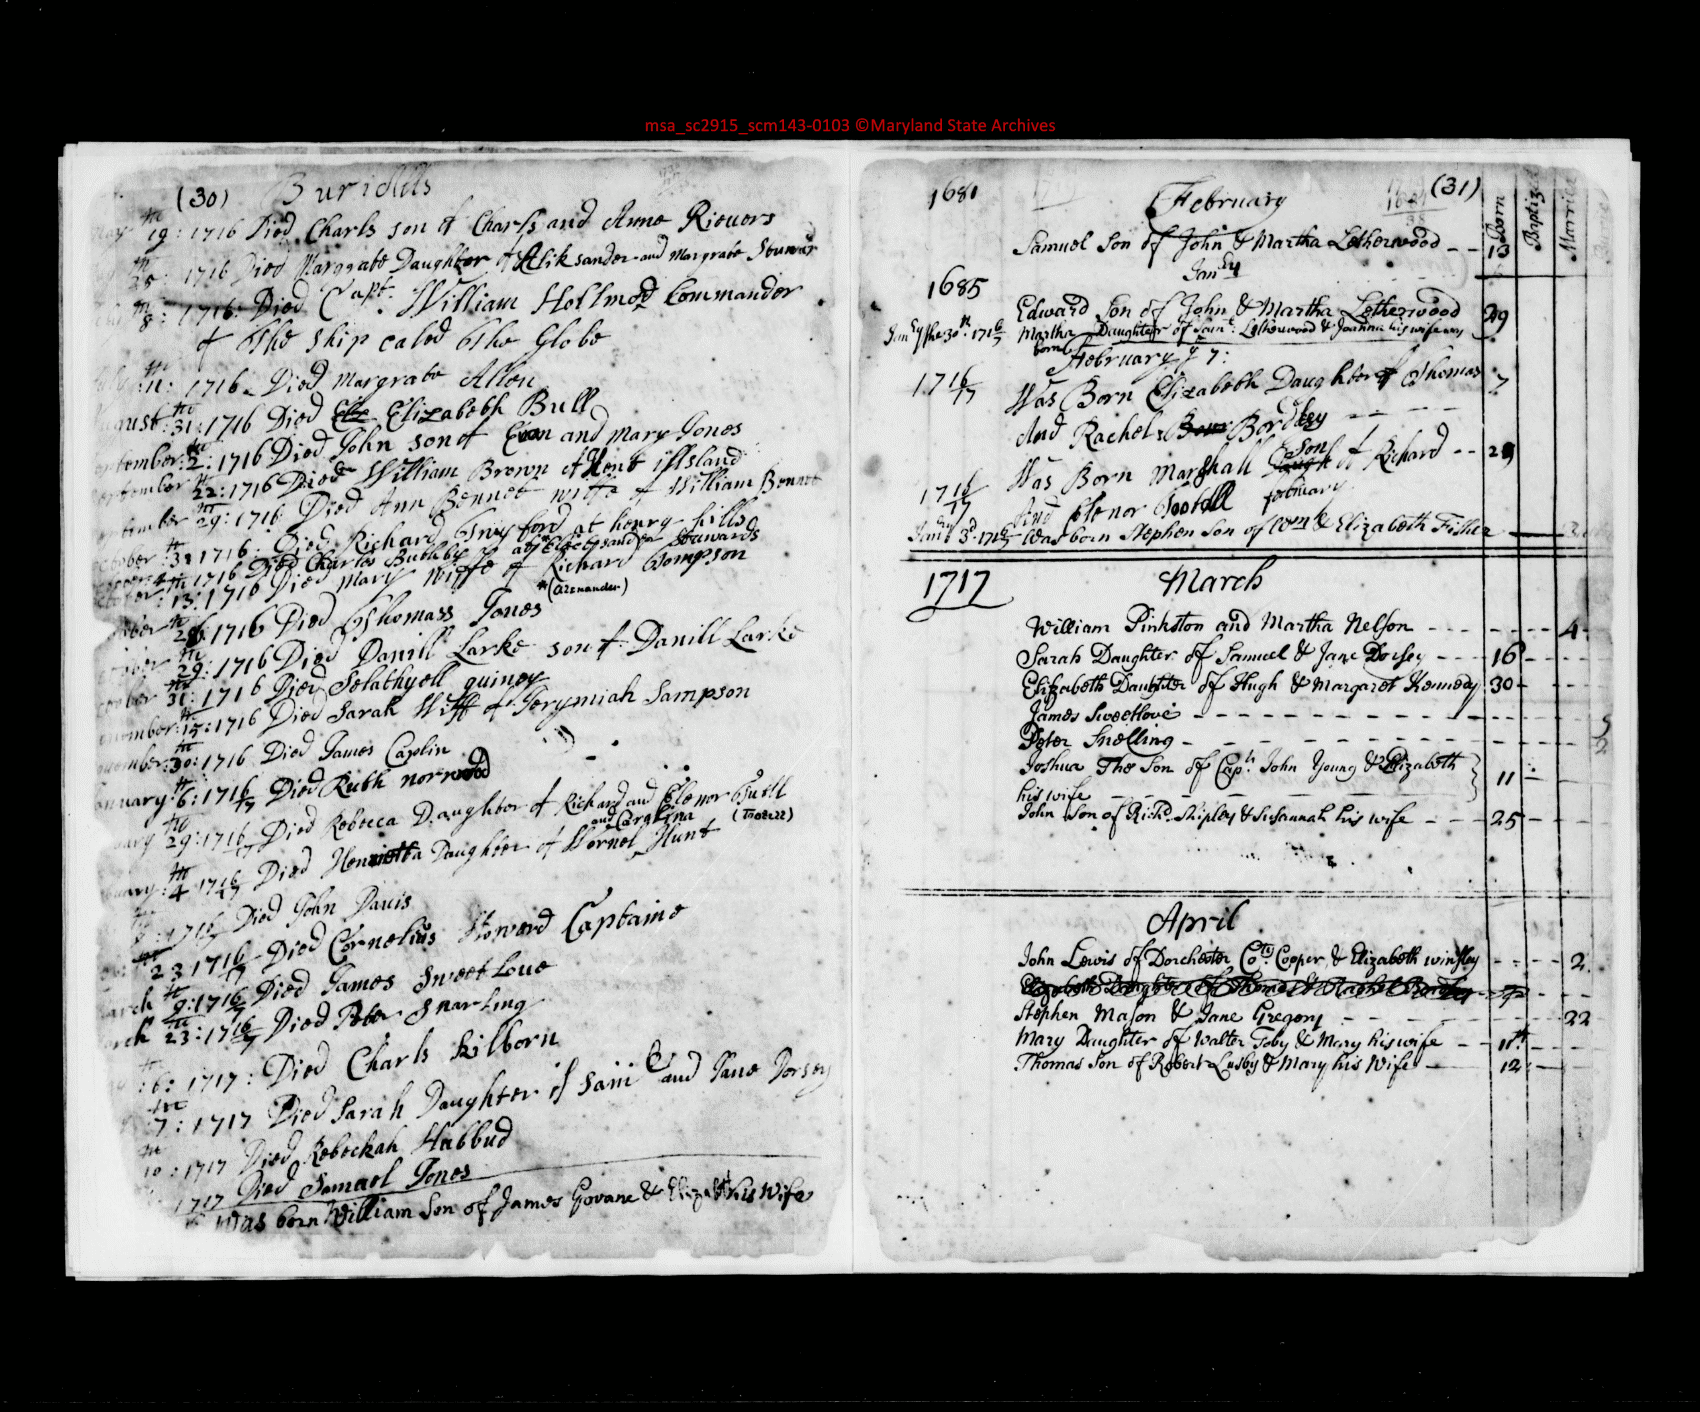 msa_sc2915_scm143-0103 ©Maryland State Archives
(30) Burialls
19th: 1716 Died Charls son of Charls and Anne Rievers
25th: 1716 Died Margrate Daughter of Aliksander and Margrate Stuward
8th: 1716 Died Capt. William Hollmod Commander
of The Ship caled The Globe
11th: 1716 Died Margrate Allon
ugust: 31th: 1716 Died Eliz Elizabeth Bull
ptember: 2th: 1716 Died John son of Evan and Mary Jones
eptember 22th: 1716 Died William Brown At Kent Illsland
ptember 29th: 1716 Died Ann Bennet wiffe of William Bennet
ctober 3th: 1716: Died Richard Snyford at henry hills
1716 Died Charles Buthby at Elecksander Stuwards
13th: 1716 Died Mary Wiffe of Richard Tompson
*(Alexander)
ober 28th: 1716 Died Thomass Jones
29th: 1716 Died Danill Larke son of Danill Larke
31th: 1716 Died Selathyell quiney
uember: 15th: 1716 Died Sarah Wiff of Jerymiah Sampson
ouember: 30th: 1716 Died James Caplin
anuary: 6th: 1716/7 Died Ruth norwood
uary 29th: 1716/7 Died Rebecca Daughter of Richard and Elenor Tutll
and Carolina (Tootell)
uary: 4th 1716/17 Died Henrietta Daughter of Wornel Hunt
1716/7 Died John Davis
23th 1716/17 Died Cornelius Howard Captaine
arch 9th: 1716/7 Died James Sweet Love
arch 23th: 1716/7 Died Peter Snarling
6th: 1717: Died Charls Kilborn
7th: 1717 Died Sarah Daughter of Samll and Jane Dorsey
10th: 1717 Died Rebeckah Habbud
1717 Died Samuel Jones
Was born William Son of James Govane & Elizabth his Wife
1681 (31)
February Born Baptized Married
Samuel Son of John & Martha Letherwood -- 13
Janry
1685
Edward Son of John & Martha Letherwood 29
Janry the 30th 1716/7 Martha Daughter of Saml: Letherwood & Joanna his wife was
born
February ye 7:
1716/17 Was Born Elizabeth Daughter of Thomas 7
And Rachel Bordley -- -- --
Was Born Marshall Daugh Son of Richard -- 28
1716/17 And Elenor Tootell february
Janry 3d 1716/7 Was born Stephen Son of Wm & Elizabeth Fisher
1717 March
William Pinkston and Martha Nelson - - - - - - - 4
Sarah Daughter of Samuel & Jane Dorsey - - - 16 - - - -
Elizabeth Daughter of Hugh & Margaret Kennedy 30 - - - -
James Sweetlove - - - - - - - - - -
Peter Snelling - - - - - - - - - -
Joshua The Son of Capt. John Young & Elizabeth
his wife - - - - - - - 11 - - -
John Son of Richd. Shipley & Susannah his wife - - - 25 - - -
April
John Lewis of Dorchester Coty. Cooper & Elizabeth winsley - - - - 2
Elizabeth Daughter of Thomas & Rachel Bordley 7 - - -
Stephen Mason & Jane Gregory - - - - - - 22
Mary Daughter of Walter Toby & Mary his wife - - 11th - - -
Thomas Son of Robert Lusby & Mary his Wife - - - 12 - - -